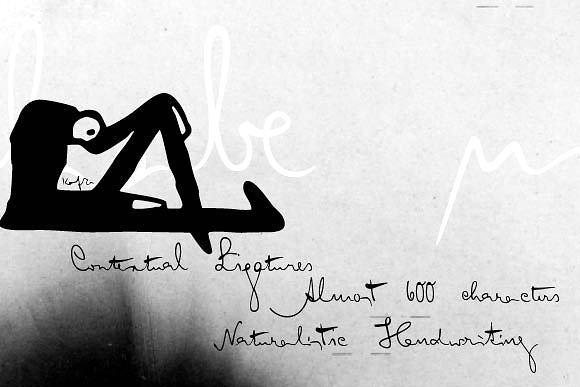 be
Kafka
Contextual Ligatures
Almost 600 characters
Naturalistic Handwriting